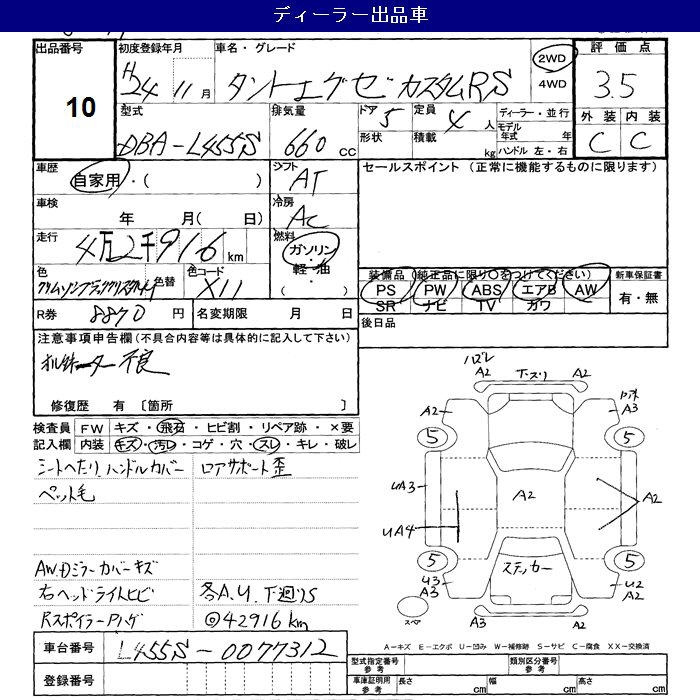 ディーラー出品車
出品番号 10
初度登録年月 H24年 11月
車名・グレード タントエグゼ カスタムRS
2WD
4WD
評価点 3.5
外装 内装
C C
型式 DBA-L455S
排気量 660 cc
ドア 5
形状
定員 4 人
積載 kg
ディーラー・並行
モデル年式 年
ハンドル 左・右
車歴 自家用・( )
シフト AT
セールスポイント (正常に機能するものに限ります)
車検 年 月( 日)
冷房 AC
走行 4万2千916 km
燃料 ガソリン・軽・油 ( )
色 クリムゾンブラッククリスタルM 色替
色コード X11
装備品(純正品に限り○をつけてください) 新車保証書
PS PW ABS エアB AW
SR ナビ TV カワ
有・無
R券 8870 円
名変期限 月 日
後日品
注意事項申告欄(不具合内容等は具体的に記入して下さい)
オルターター 不良
修復歴 有 〔箇所 〕
検査員記入欄
FW キズ・飛石・ヒビ割・リペア跡・×要
内装 キズ・汚レ・コゲ・穴・スレ・キレ・破レ
シートへたり ハンドルカバー ロアサポート歪
ペット毛
AW・Dミラーカバーキズ
右ヘッドライトヒビ 各A.U.下廻りS
RスポイラーPハゲ ◎42916km
ハズレ
A2 下スリ A2
A2 A3
5 5
UA3 A2 A2
UA4
5 5
ステッカー
U3 A3 U2 A2
スペア
A3 A2
A-キズ E-エクボ U-凹み W-補修跡 S-サビ C-腐食 XX-交換済
車台番号 L455S-0077312
登録番号
型式指定番号 参考
類別区分番号 参考
車庫証明用 参考
長さ cm 幅 cm 高さ cm